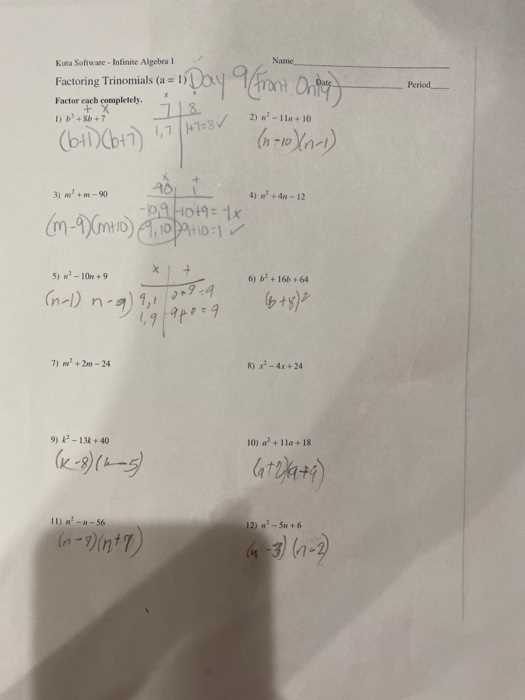 Kuta Software - Infinite Algebra 1
Name
Factoring Trinomials (a = 1)
Day 9 (Front Only)
Date
Period
Factor each completely.
+ x
x
7 | 8
1) b² + 8b + 7
1, 7 | 1+7=8 ✓
(b+1)(b+7)
2) n² - 11n + 10
(n-10)(n-1)
3) m² + m - 90
x +
-90 | 1
-10, 9 | -10+9 = -1 x
-9, 10 | -9+10=1 ✓
(m-9)(m+10)
4) n² + 4n - 12
5) n² - 10n + 9
x | +
(n-1) n-9)
9, 1
1, 9
6) b² + 16b + 64
(b+8)²
7) m² + 2m - 24
8) x² - 4x + 24
9) k² - 13k + 40
(k-8)(k-5)
10) a² + 11a + 18
(a+2)(a+9)
11) n² - n - 56
12) n² - 5n + 6
(n-3)(n-2)